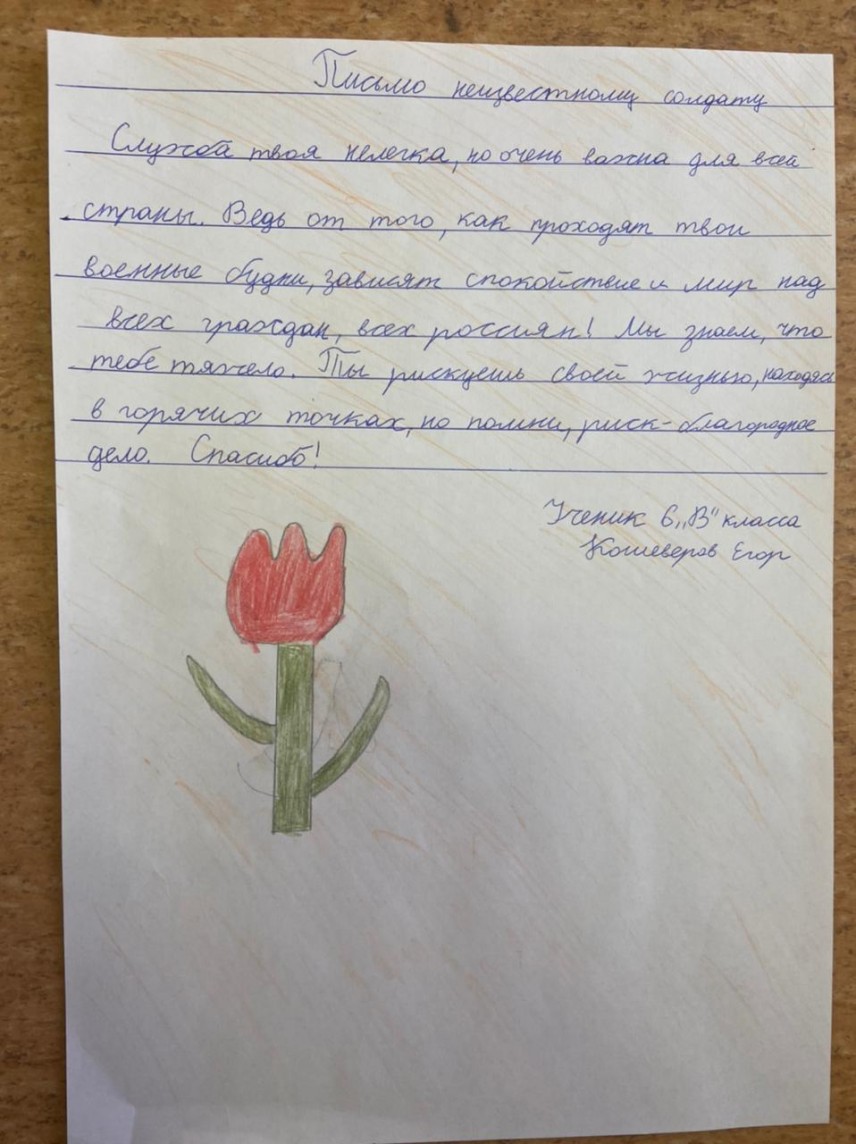 Письмо неизвестному солдату
Служба твоя нелегка, но очень важна для всей
страны. Ведь от того, как проходят твои
военные будни, зависят спокойствие и мир над
всех граждан, всех россиян! Мы знаем, что
тебе тяжело. Ты рискуешь своей жизнью, находясь
в горячих точках, но помни, риск-благородное
дело. Спасибо!
Ученик 6 „В" класса
Кошеверов Егор